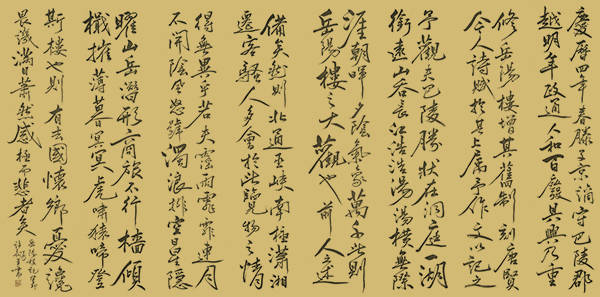 慶曆四年春滕子京謫守巴陵郡
越明年政通人和百廢具興乃重
修岳陽樓增其舊制刻唐賢
今人詩賦於其上屬予作文以記之
予觀夫巴陵勝狀在洞庭一湖
銜遠山吞長江浩浩湯湯橫無際
涯朝暉夕陰氣象萬千此則
岳陽樓之大觀也前人之述
備矣然則北通巫峽南極瀟湘
遷客騷人多會於此覽物之情
得無異乎若夫霪雨霏霏連月
不開陰風怒號濁浪排空星隱
曜山岳潛形商旅不行檣傾
檝摧薄暮冥冥虎嘯猿啼登
斯樓也則有去國懷鄉憂讒
畏譏滿目蕭然感極而悲者矣